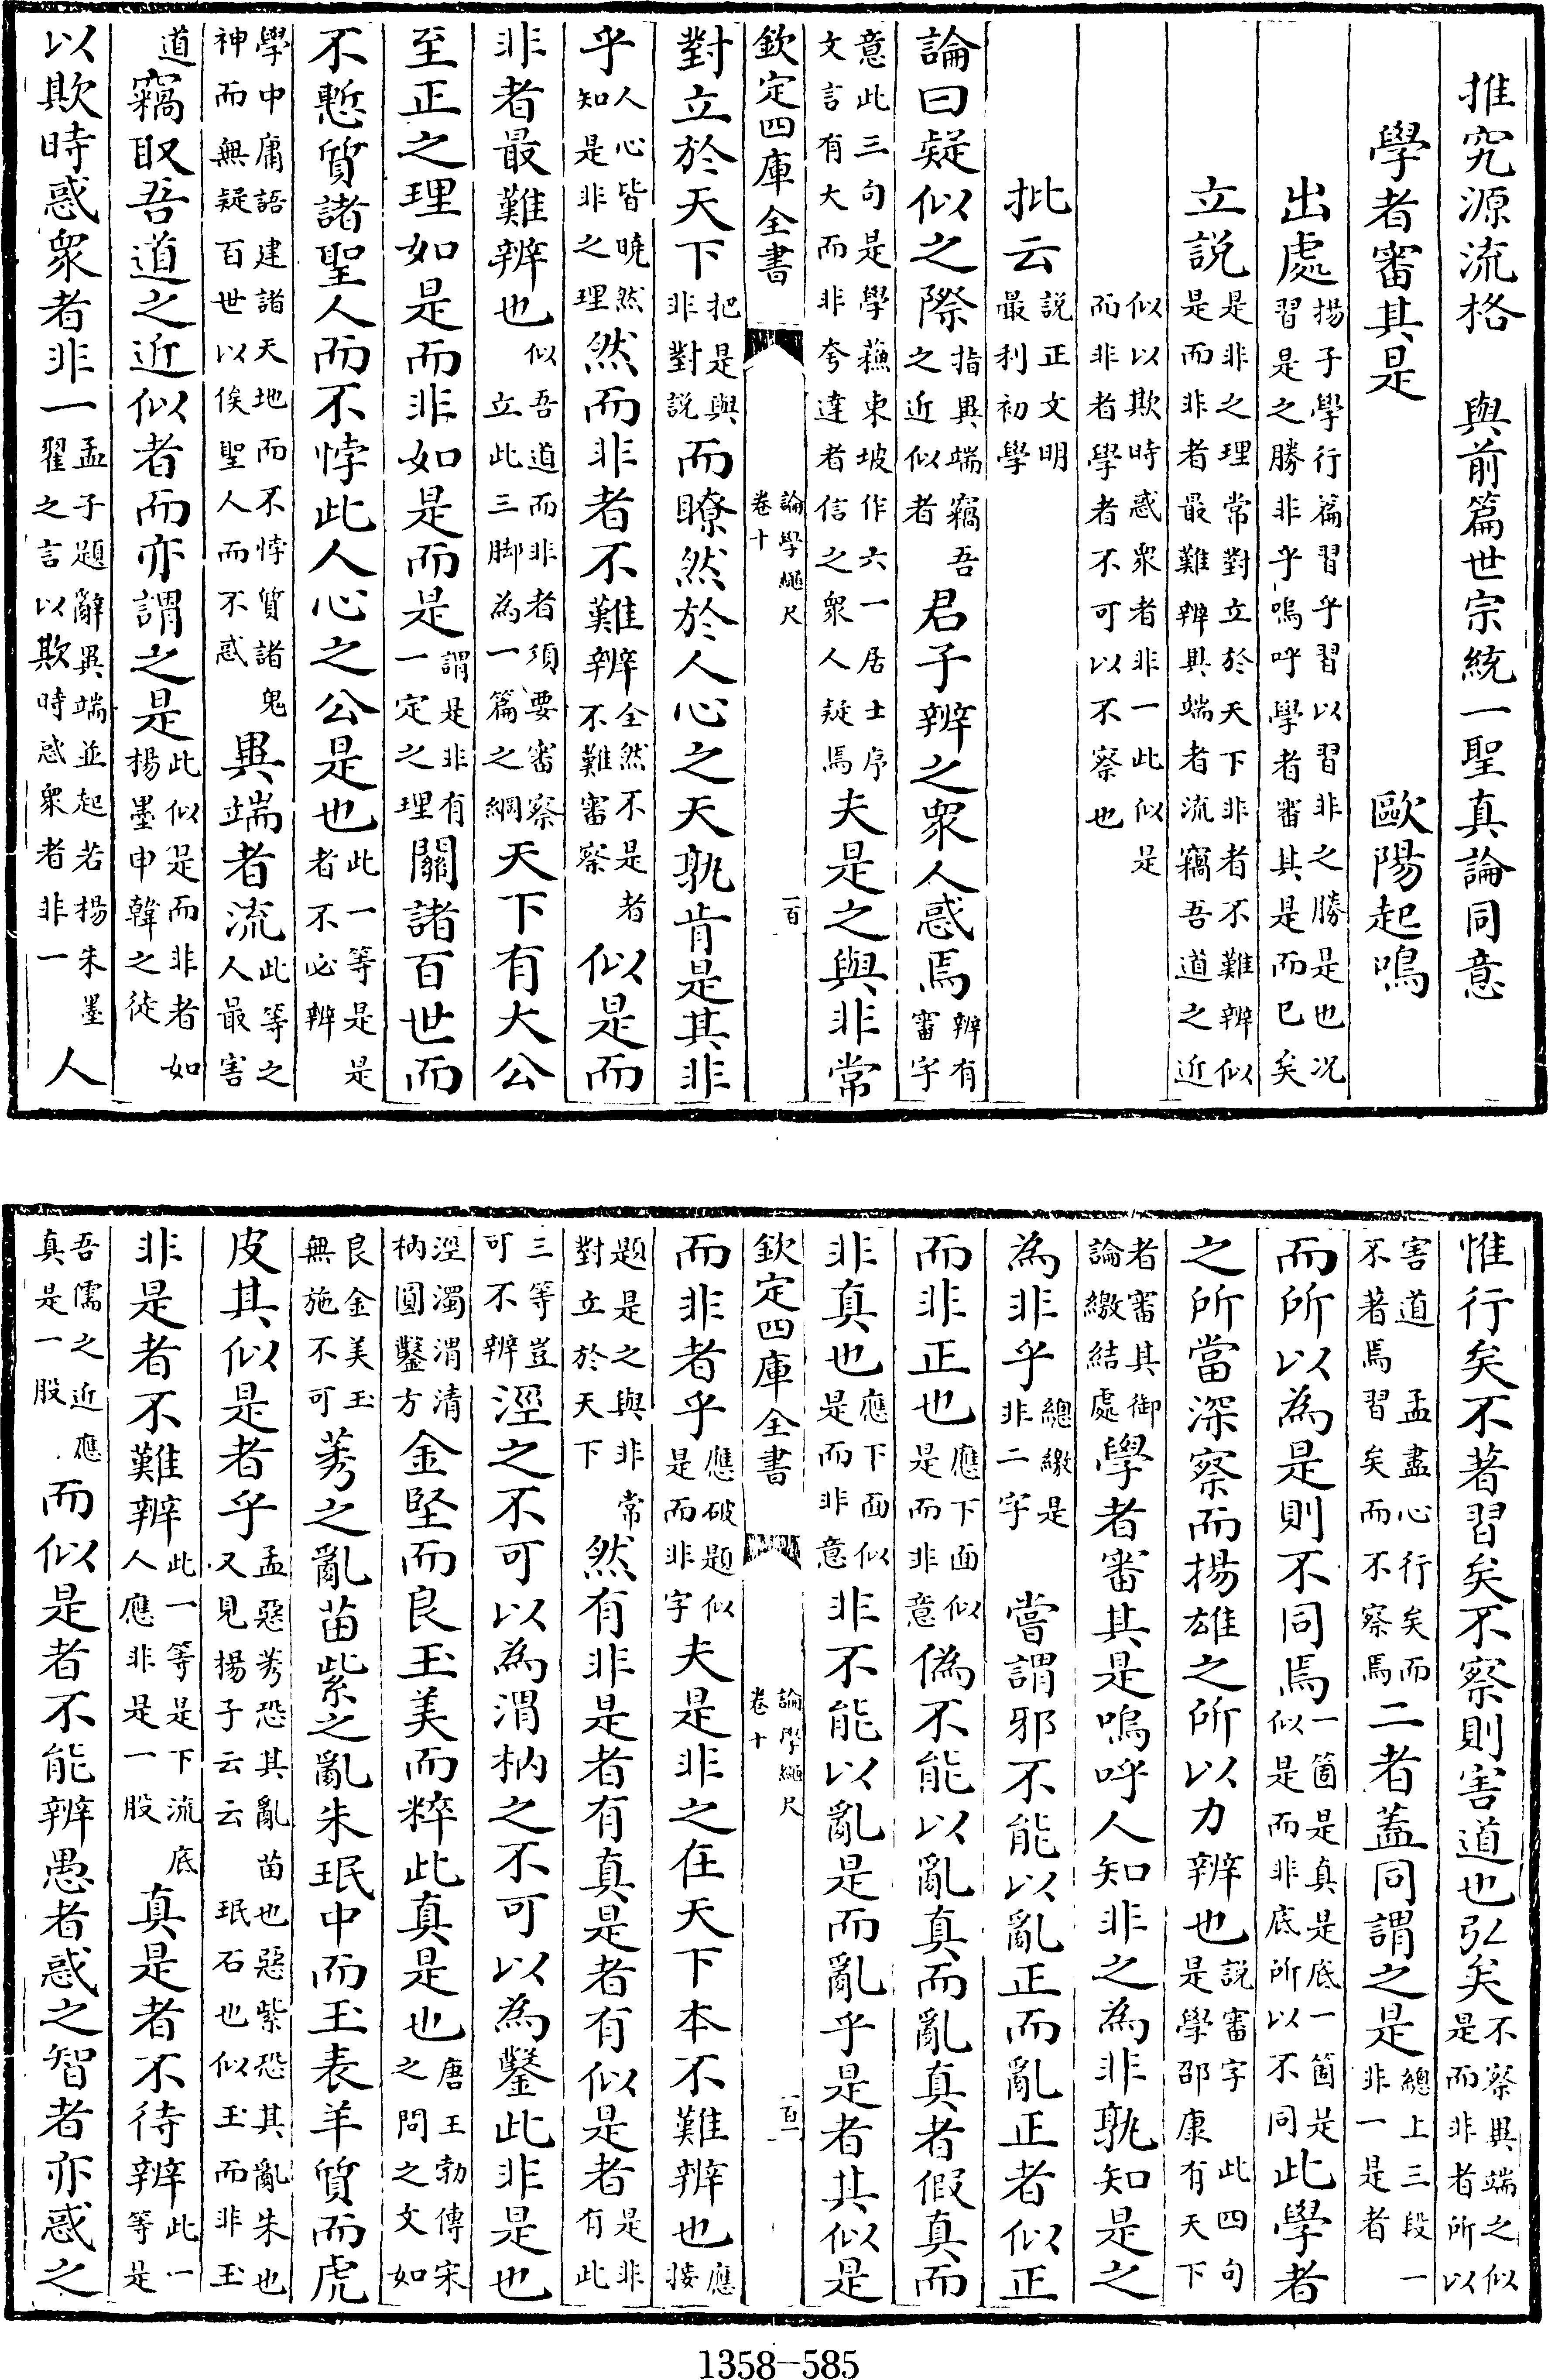 推究源流格　與前篇世宗統一聖真論同意
學者審其是　歐陽起鳴
出處揚子學行篇習乎習以習非之勝是也况習是之勝非乎嗚呼學者審其是而已矣
立說是非之理常對立於天下非者不難辨似是而非者最難辨異端者流竊吾道之近
似以欺時惑衆者非一此似是而非者學者不可以不察也
批云說正文明最利初學
論曰疑似之際指異端竊吾之近似者君子辨之衆人惑焉辨有審字
意此三句是學蘇東坡作六一居士序文言有大而非夸達者信之衆人疑焉夫是之與非常
欽定四庫全書　論學繩尺卷十　一百
對立於天下把是與非對說而瞭然於人心之天孰肯是其非
乎人心皆曉然知是非之理然而非者不難辨全然不是者不難審察似是而
非者最難辨也似吾道而非者須要審察立此三脚為一篇之綱天下有大公
至正之理如是而非如是而是謂是非有一定之理關諸百世而
不慙質諸聖人而不悖此人心之公是也此一等是是者不必辨
學中庸語建諸天地而不悖質諸鬼神而無疑百世以俟聖人而不惑異端者流此等之人最害
道竊取吾道之近似者而亦謂之是此似是而非者如揚墨申韓之徒
以欺時惑衆者非一孟子題辭異端並起若揚朱墨翟之言以欺時惑衆者非一人
惟行矣不著習矣不察則害道也弘矣不察異端之似是而非者所以
害道孟盡心行矣而不著焉習矣而不察焉二者蓋同謂之是總上三段一非一是者
而所以為是則不同焉一箇是真是底一箇是似是而非底所以不同此學者
之所當深察而揚雄之所以力辨也說審字此四句是學邵康有天下
者審其御論繳結處學者審其是嗚呼人知非之為非孰知是之
為非乎總繳是非二字嘗謂邪不能以亂正而亂正者似正
而非正也應下面似是而非意偽不能以亂真而亂真者假真而
非真也應下面似是而非意非不能以亂是而亂乎是者其似是
欽定四庫全書　論學繩尺卷十　一百一
而非者乎應破題似是而非字夫是非之在天下本不難辨也應接
題是之與非常對立於天下然有非是者有真是者有似是者是非有此
三等豈可不辨涇之不可以為渭枘之不可以為鑿此非是也
涇濁渭清枘圓鑿方金堅而良玉美而粹此真是也唐王勃傳宋之問之文如
良金美玉無施不可莠之亂苗紫之亂朱珉中而玉表羊質而虎
皮其似是者乎孟惡莠恐其亂苗也惡紫恐其亂朱也又見揚子云云珉石也似玉而非玉
非是者不難辨此一等是下流底人應非是一股真是者不待辨此一等是
吾儒之近應真是一股而似是者不能辨愚者惑之智者亦惑之
1358-585